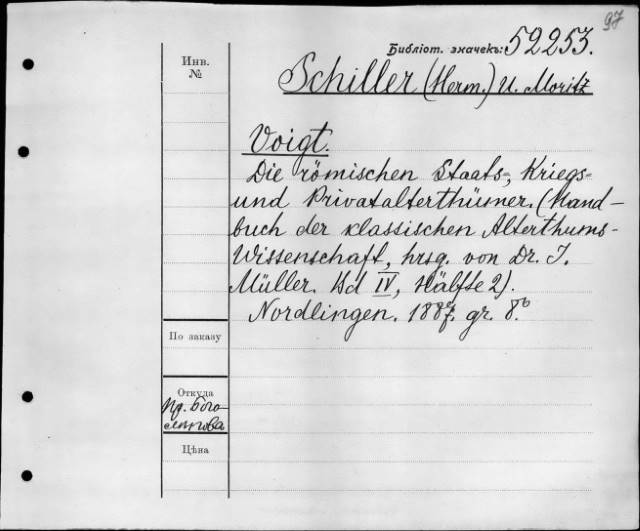 97
Библіот. значекъ: 52253.
Инв.
№
Schiller (Herm.) u. Moritz
Voigt.
Die römischen Staats-, Kriegs-
und Privatalterthümer. (Hand-
buch der klassischen Alterthums-
Wissenschaft, hrsg. von Dr. I.
Müller. Bd IV, Hälfte 2).
Nordlingen. 1887. gr. 8º
По заказу
Откуда
Пр. Бого-
лѣпова
Цѣна